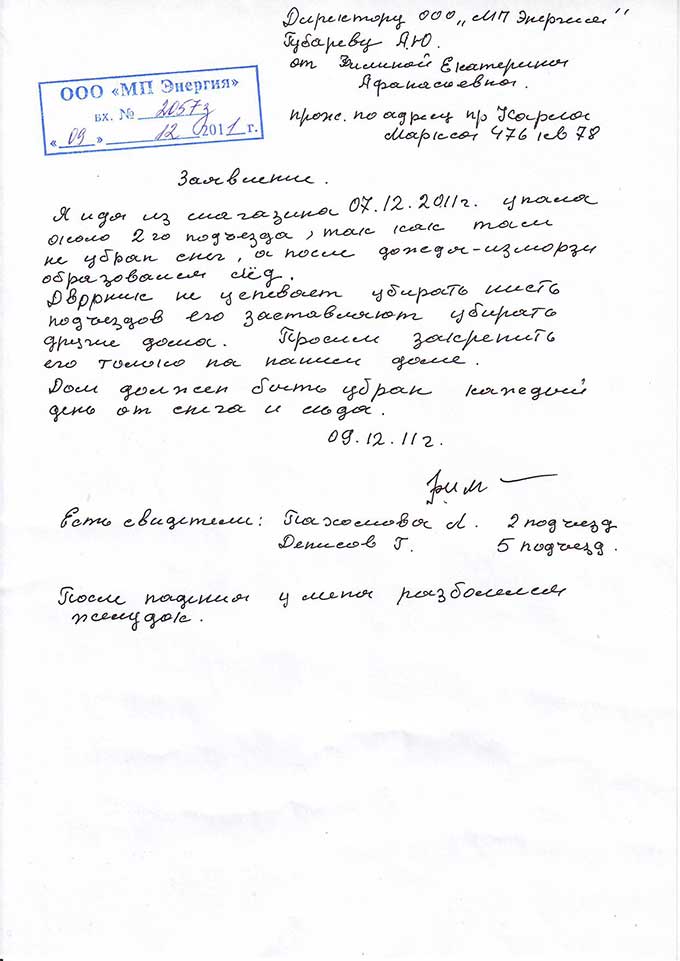 Директору ООО „МП Энергия"
Губареву А.Ю.
от Зиминой Екатерины
Афанасьевна.
прож. по адресу пр Карла
Маркса 476 кв 78
ООО «МП Энергия»
вх. № 2057з
« 09 » 12 2011 г.
Заявление.
Я идя из магазина 07.12.2011г. упала
около 2го подъезда, так как там
не убран снег, а после дождя-изморзи
образовался лёд.
Дворник не успевает убирать шесть
подъездов его заставляют убирать
другие дома. Просим закрепить
его только на нашем доме.
Дом должен быть убран каждый
день от снега и льда.
09.12.11г.
Есть свидетели: Пахомова Л. 2 подъезд
Денисов Г. 5 подъезд.
После падения у меня разболелся
желудок.